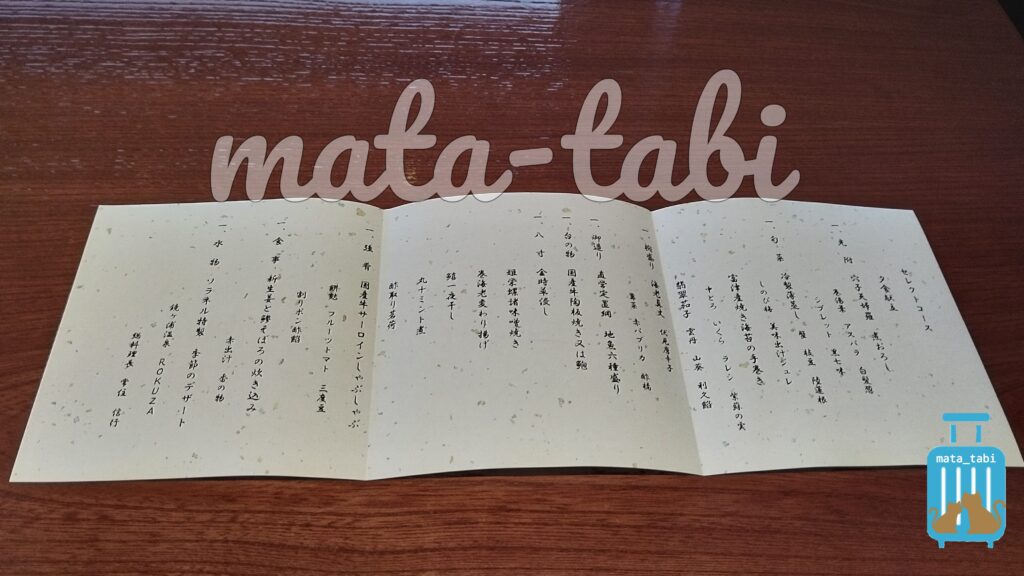 mata-tabi
セレクトコース
夕食献立
一、先附 穴子天婦羅 煮おろし
巻湯葉 アスパラ 白髪葱
シブレット 黒七味
一、旬菜 冷製 蒸し 蟹 枝豆 陸蓮根
しのび梅 美味出汁ジュレ
富津産焼き海苔の手巻き
中とろ いくら ラレシ 紫蘇の実
翡翠茄子 雲丹 山葵 利久餡
一、椀盛り 海老真丈 伏見唐辛子
蓴菜 赤パプリカ 酢橘
一、御造り 直営定置網 地魚六種盛り
一、台の物 国産牛陶板焼き又は鮑
一、八寸 金時草浸し
姫栄螺諸味噌焼き
巻海老変わり揚げ
鮎一夜干し
丸十ミント煮
酢取り茗荷
一、強肴 国産牛サーロインしゃぶしゃぶ
フルーツトマト 三度豆
割りポン酢餡
一、食事 新生姜と鱧そぼろの炊き込み
赤出汁 香の物
一、水物 ソラネル特製 季節のデザート
鏡ヶ浦温泉 ROKUZA
総料理長 常住 信行
mata_tabi